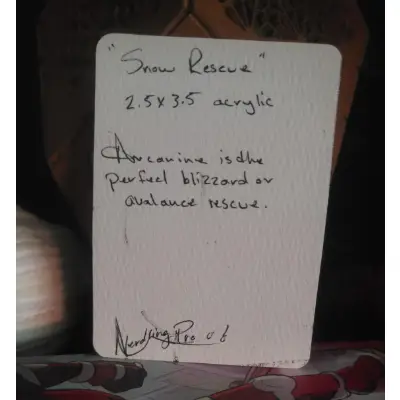 "Snow Rescue"
2.5x3.5 acrylic
Arcanine is the
perfect blizzard or
avalance rescue.
NerdKing Pro